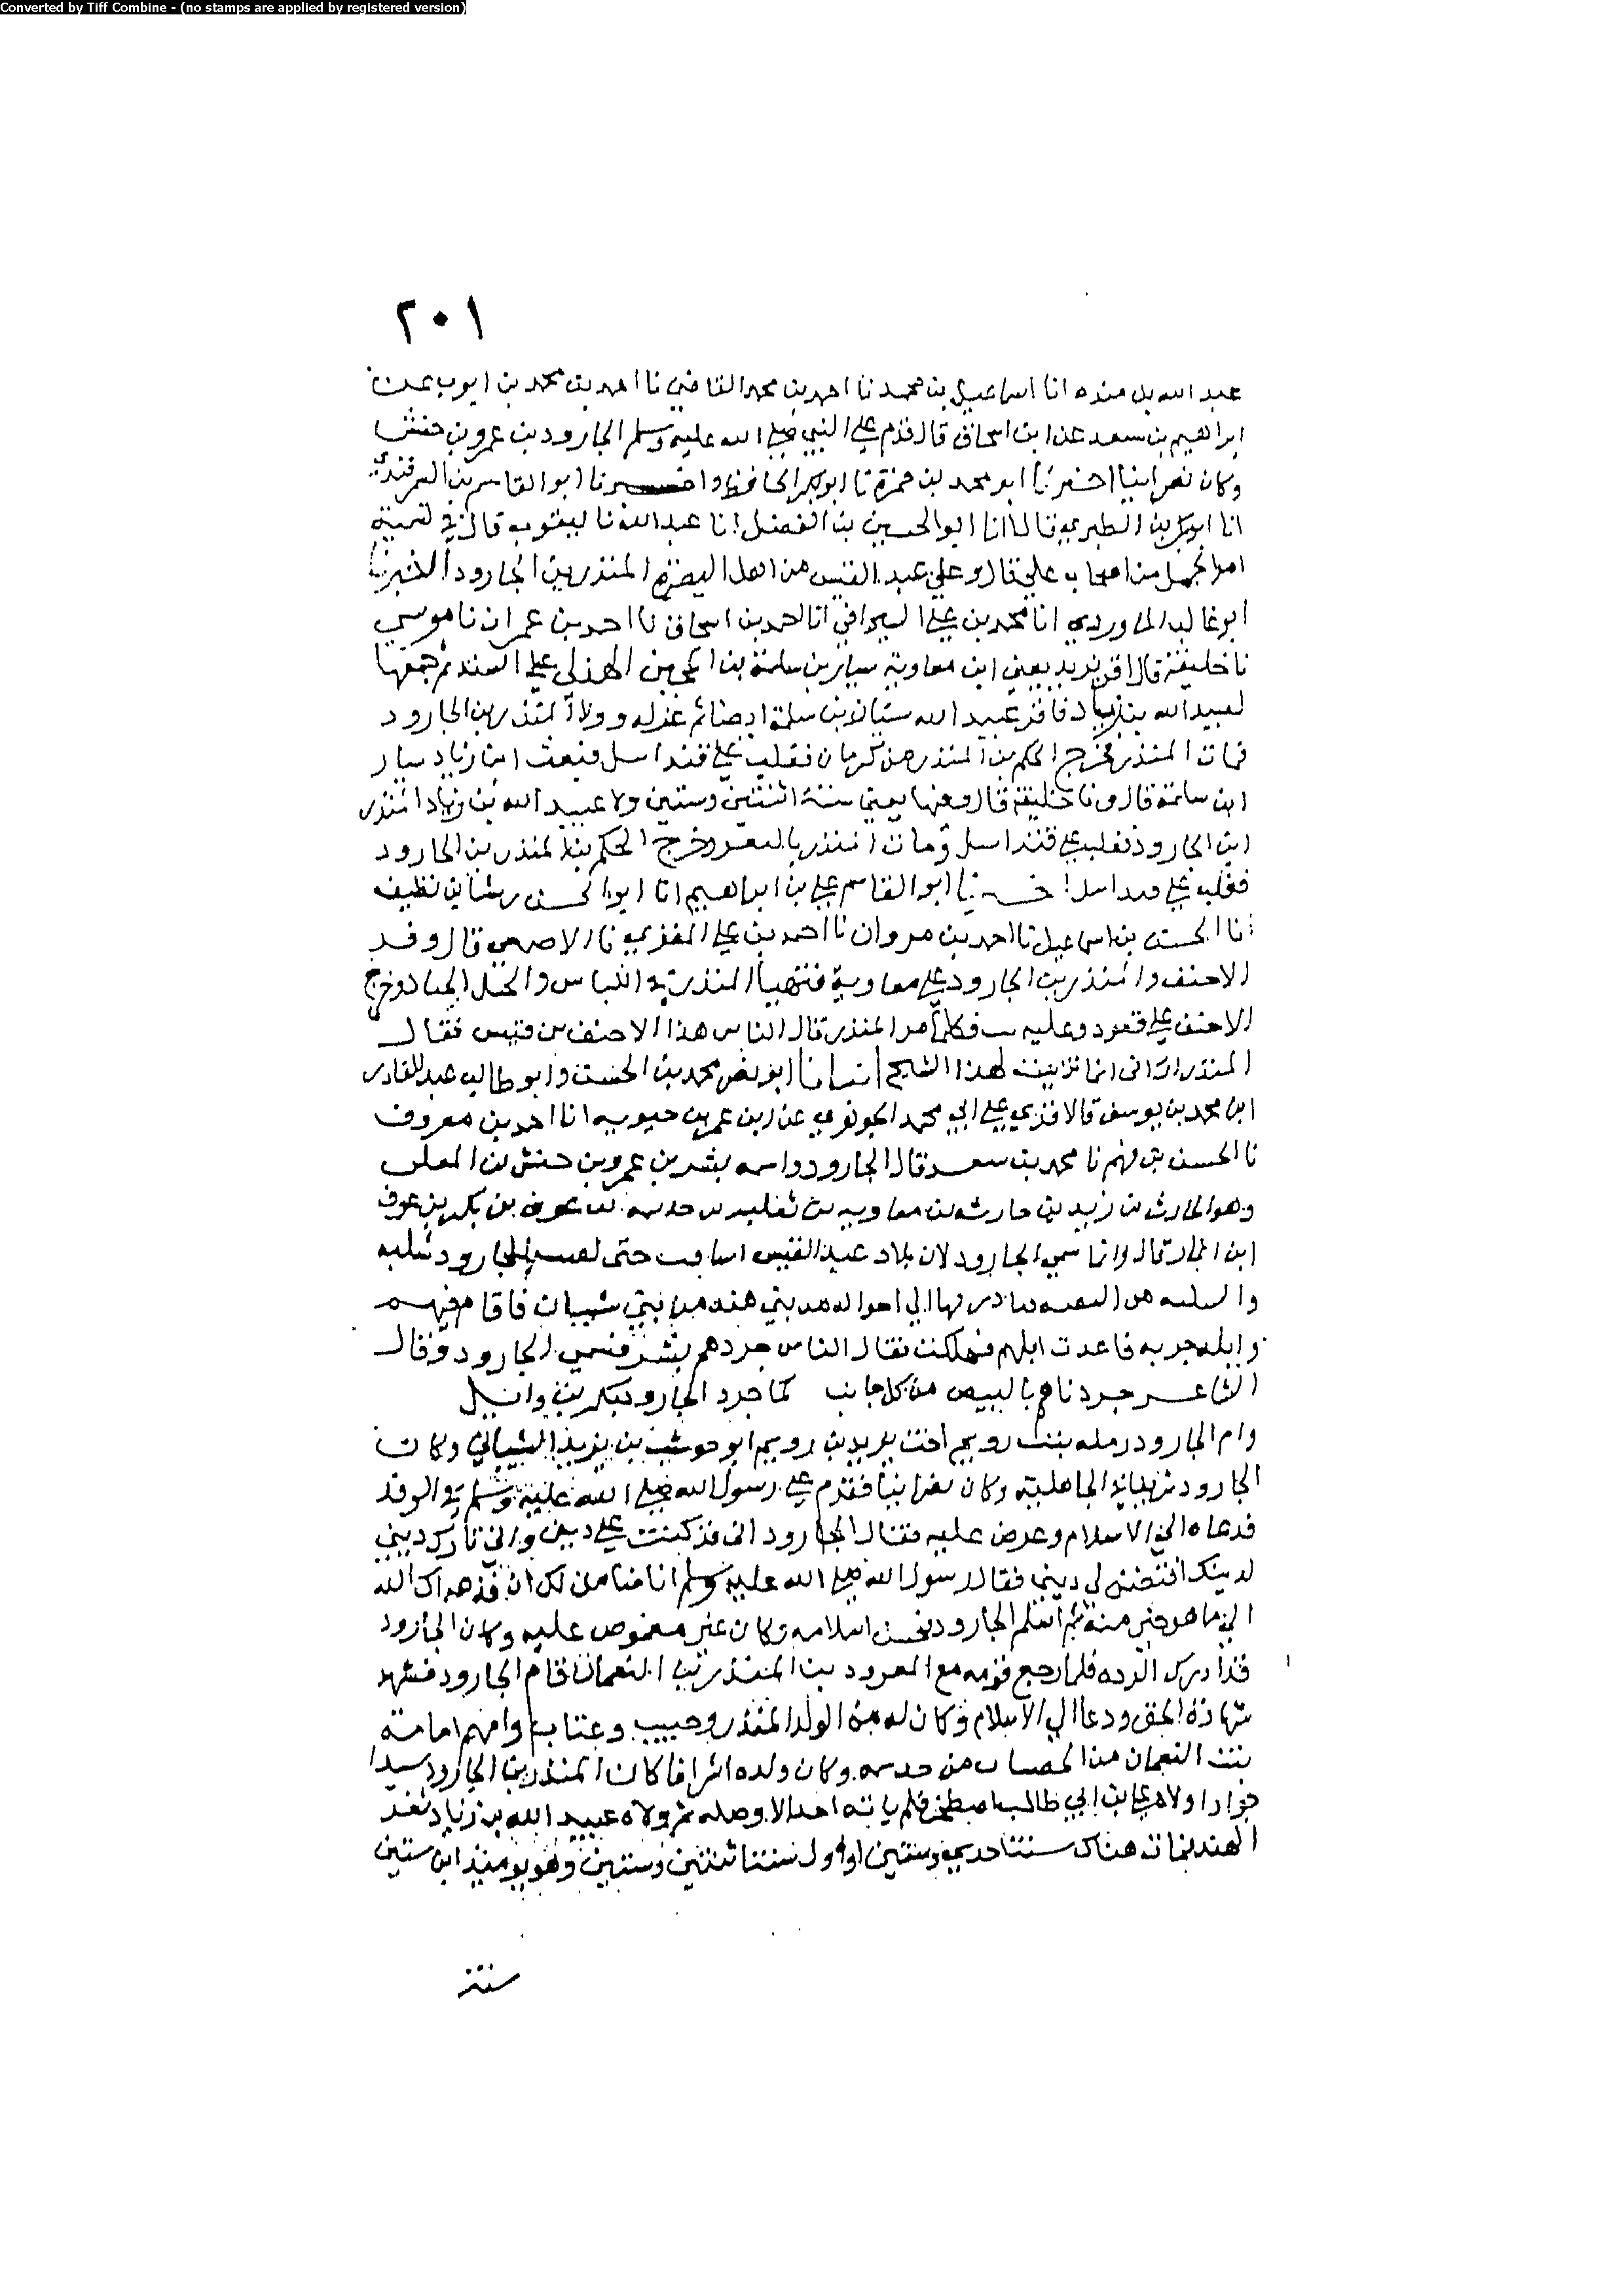 Converted by Tiff Combine - (no stamps are applied by registered version)
٢٠١
عبد الله بن منده انا اسماعيل بن محمد نا احمد بن محمد القاضي نا احمد بن محمد بن ايوب عن
ابراهيم بن سعد عن ابن اسحاق قال قدم على النبي صلى الله عليه وسلم الجارود بن عمرو بن حنش
وكان نصرانيا اخبرنا ابو محمد بن حمزة نا ابو بكر الحافظ واخبرنا ابو القاسم بن السمرقندي
انا ابو بكر بن الطبري قالا انا ابو الحسين بن الفضل انا عبد الله نا يعقوب قال في تسمية
امرا الجمل من اصحاب علي قال وعلى عبد القيس من اهل البصرة المنذر بن الجارود اخبرنا
ابو غالب الماوردي انا محمد بن علي السيرافي انا احمد بن اسحاق نا احمد بن عمران نا موسى
نا خليفة قال اقر يزيد يعني ابن معاوية سنان بن سلمة بن المحبق الهذلي على السند ثم جمعها
لعبيد الله بن زياد فاقر عبيد الله سنان بن سلمة ايضا ثم عزله وولا المنذر بن الجارود
فمات المنذر فخرج الحكم بن المنذر من كرمان فغلب على قندابيل فبعث ابن زياد سنان
ابن سلمة قال ونا خليفة قال وفيها يعني سنة اثنتين وستين ولا عبيد الله بن زياد المنذر
ابن الجارود فغلب على قندابيل ومات المنذر بالثغر وخرج الحكم بن المنذر بن الجارود
فغلب على قندابيل اخبرنا ابو القاسم علي بن ابراهيم انا ابو الحسن رشا بن نظيف
انا الحسن بن اسماعيل نا احمد بن مروان نا احمد بن علي المقري نا الاصمعي قال وفد
الاحنف والمنذر بن الجارود على معاوية فتهيا المنذر في اللباس والخيل الجياد وخرج
الاحنف على قعود وعليه بت فكلما مر المنذر قال الناس هذا الاحنف بن قيس فقال
المنذر اراني انما تزينت لهذا الشيخ انبانا ابو نصر محمد بن الحسن وابو طالب عبد القادر
ابن محمد بن يوسف قالا قري على ابي محمد الجوهري عن ابن عمر بن حيويه انا احمد بن معروف
نا الحسن بن فهم نا محمد بن سعد قال الجارود واسمه بشر بن عمرو بن حنش بن المعلى
وهو الحارث بن زيد بن حارثه بن معاويه بن ثعلبه بن جذيمه بن عوف بن بكر بن عوف
ابن انمار قال وانما سمي الجارود لان بلاد عبد القيس اسافت حتى بقيت للجارود شليه
والشليه هي البقيه فبادر بها الى اخواله من بني هند من بني شيبان فاقام فيهم
وابله جربه فاعدت ابلهم فهلكت فقال الناس جردهم بشر فسمي الجارود وقال
الشاعر جردناهم بالبيض من كل جانب كما جرد الجارود بكر بن وائل
وام الجارود درمله بنت رويم اخت يزيد بن رويم ابو حوشب بن يزيد الشيباني وكان
الجارود شريفا في الجاهلية وكان نصرانيا فقدم على رسول الله صلى الله عليه وسلم في الوفد
فدعاه الى الاسلام وعرض عليه فقال الجارود اني قد كنت على دين واني تارك ديني
لدينك افتضمن لي ديني فقال رسول الله صلى الله عليه وسلم انا ضامن لك ان قد هداك الله
الى ما هو خير منه ثم اسلم الجارود فحسن اسلامه وكان غير مغموص عليه وكان الجارود
قد ادرك الرده فلما رجع قومه مع المعرور بن المنذر بن النعمان قام الجارود فشهد
شهادة الحق ودعا الى الاسلام وكان له من الولد المنذر وحبيب وعتاب وامهم امامة
بنت النعمان من الخصفات من جذيمه وكان ولده اشرافا كان المنذر بن الجارود سيدا
جوادا ولاه علي بن ابي طالب اصطخر فلم ياته احد الا وصله ثم ولاه عبيد الله بن زياد ثغر
الهند فمات هناك سنة احدى وستين او اول سنة اثنتين وستين وهو يومئذ ابن ستين
سنة